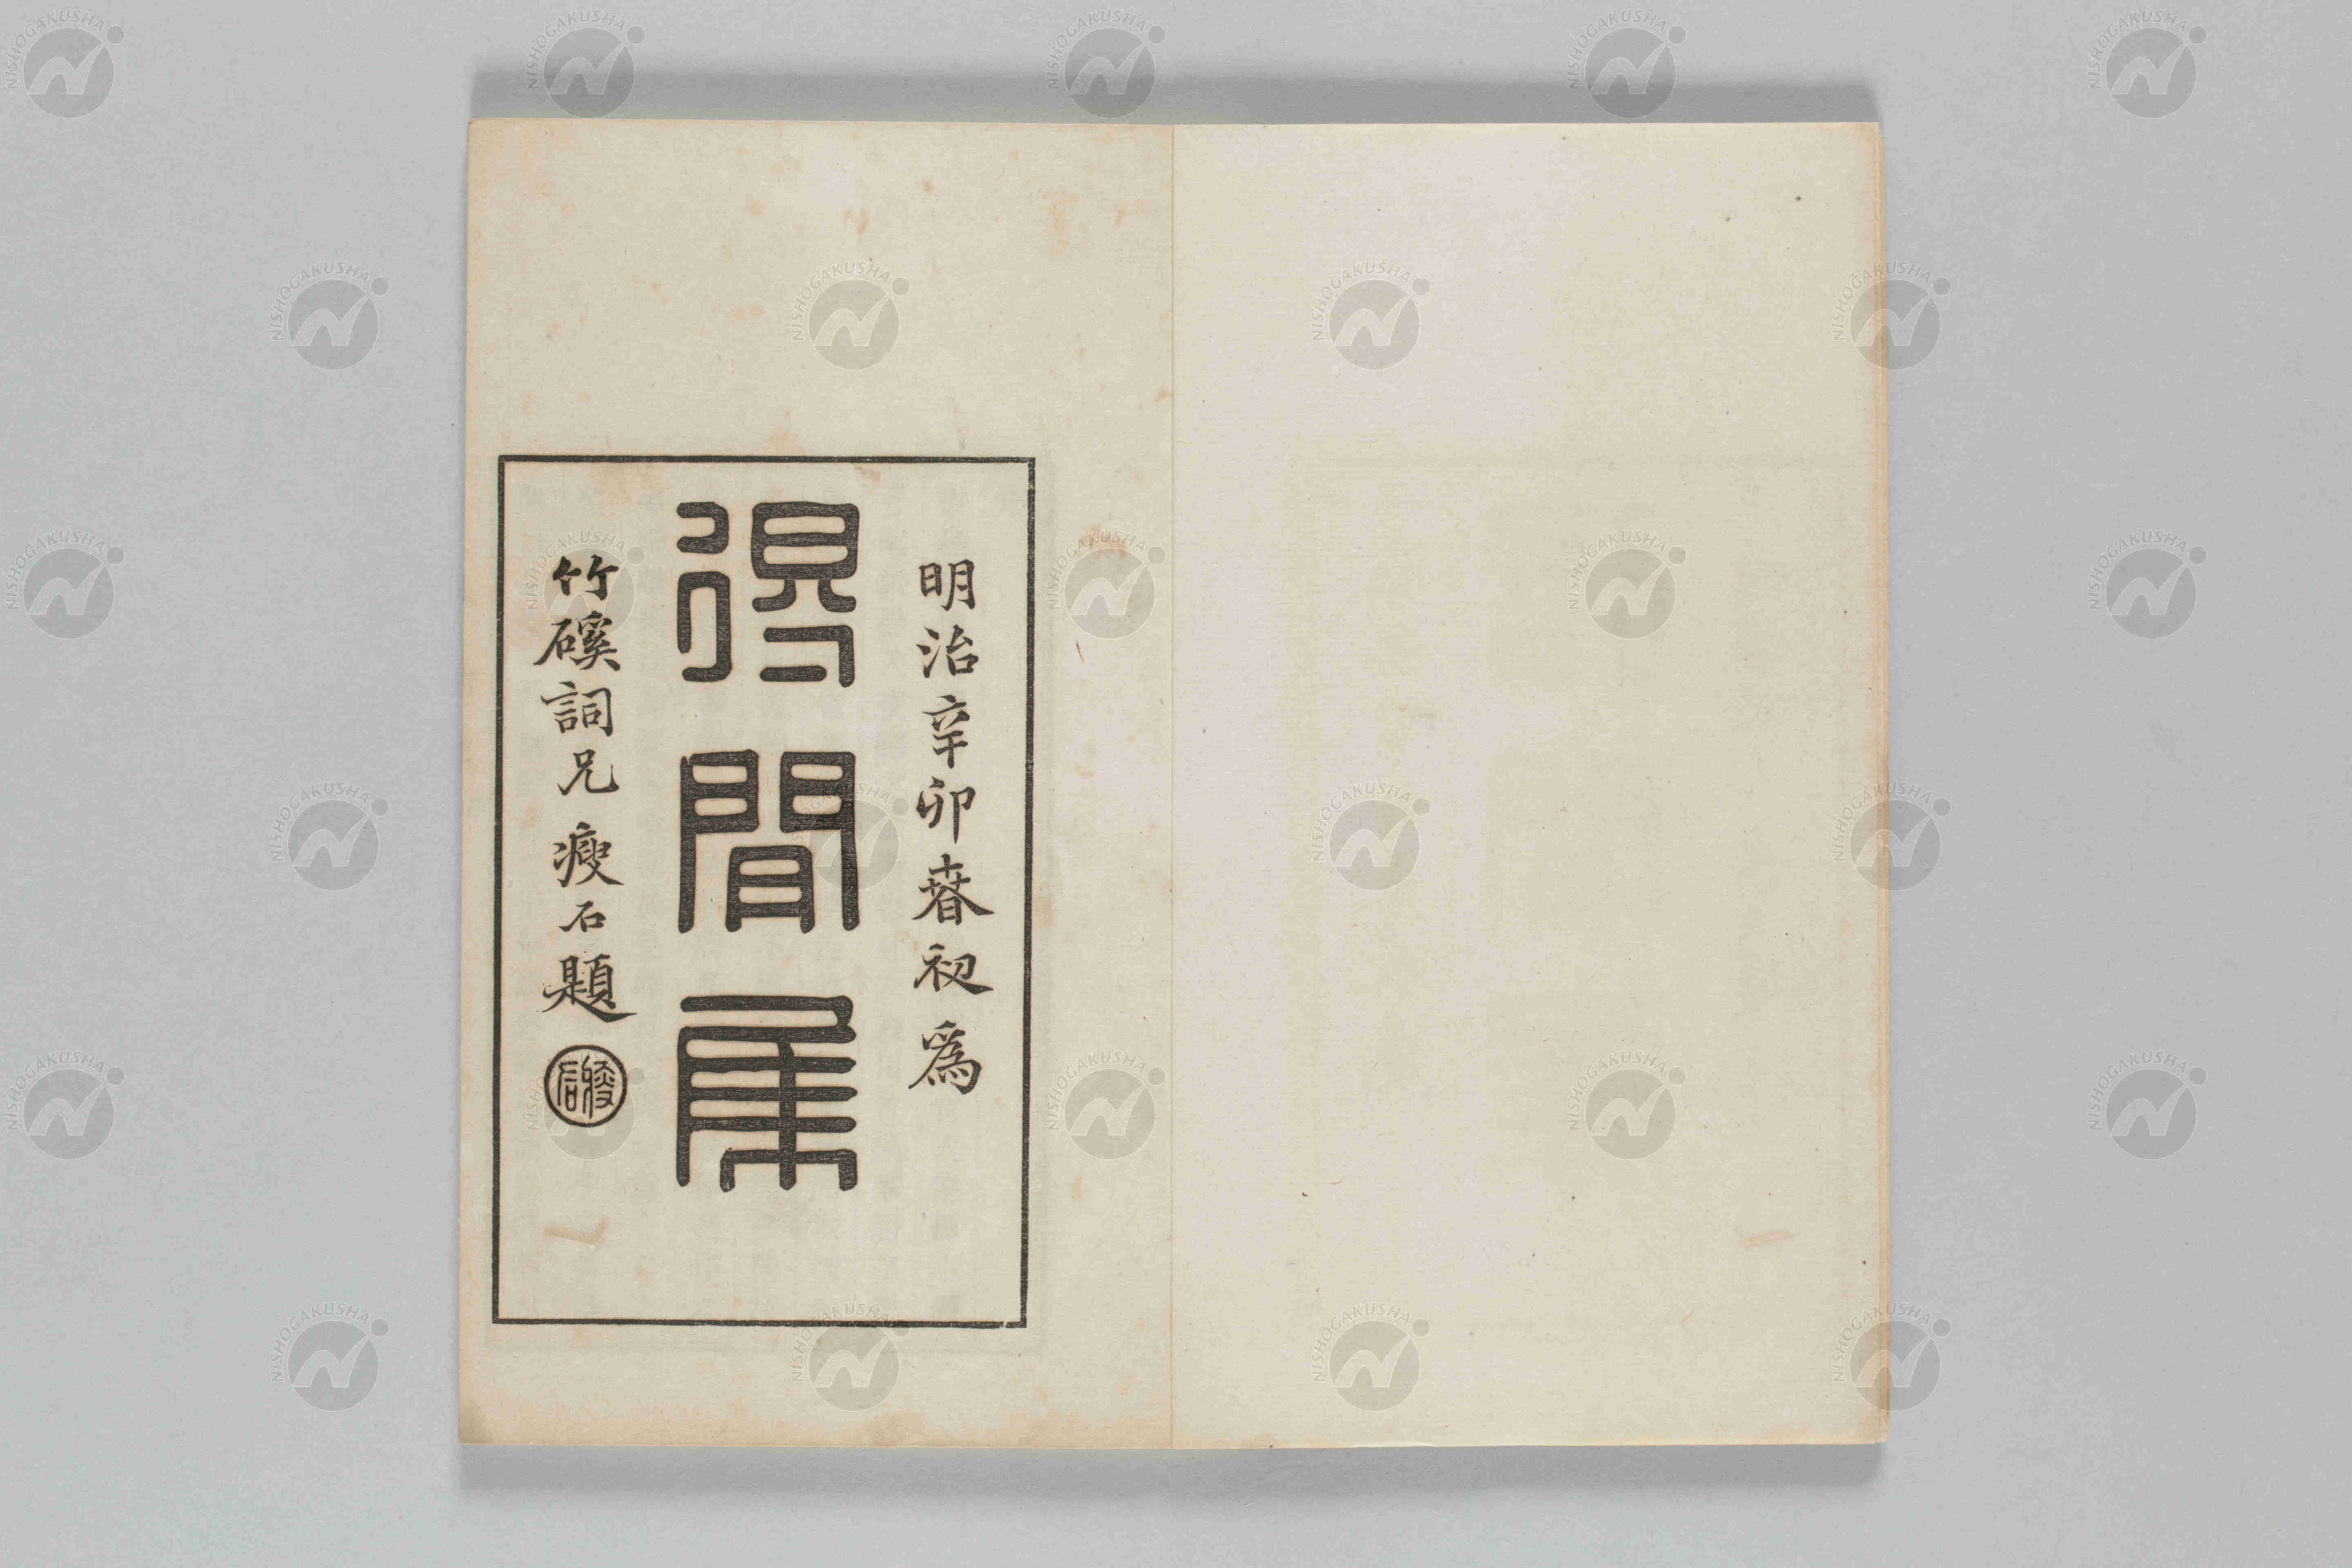 明治辛卯春初爲
得間集
竹磎詞兄 瘦石題
NISHOGAKUSHA